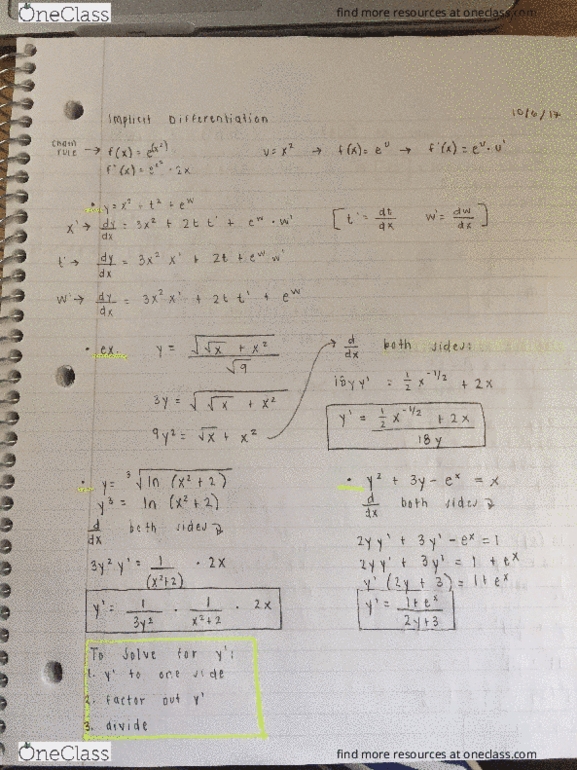 OneClass
find more resources at oneclass.com
Implicit Differentiation
10/6/17
chain rule → f(x) = e^(x²)
u = x² → f(x) = e^u → f'(x) = e^u · u'
f'(x) = e^x² · 2x
• y = x³ + t² + e^w
x' → dy/dx = 3x² + 2t t' + e^w · w'
[t' = dt/dx w' = dw/dx]
t' → dy/dx = 3x² x' + 2t + e^w w'
w' → dy/dx = 3x² x' + 2t t' + e^w
• ex. y = √(√x + x²) / √9
3y = √(√x + x²)
9y² = √x + x²
d/dx both sides:
18y y' = 1/2 x^-1/2 + 2x
y' = (1/2 x^-1/2 + 2x) / 18y
• y = ³√(ln (x² + 2))
y³ = ln (x² + 2)
d/dx both sides
3y² y' = 1/(x²+2) · 2x
y' = 1/3y² · 1/x²+2 · 2x
• y² + 3y - e^x = x
d/dx both sides
2y y' + 3y' - e^x = 1
2y y' + 3y' = 1 + e^x
y' (2y + 3) = 1 + e^x
y' = (1 + e^x) / (2y + 3)
To solve for y':
1. y' to one side
2. factor out y'
3. divide
OneClass
find more resources at oneclass.com